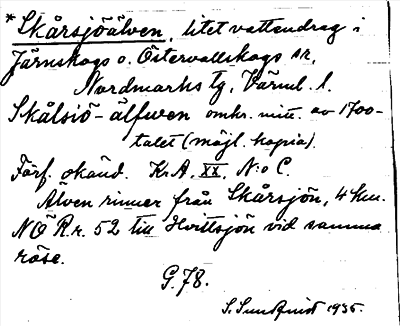 * Skårsjöälven, litet vattendrag i
Järnskogs o. Östervallskogs snr,
Nordmarks tg, Värml. l.
Skålsiö-älfwen omkr. mitt. av 1700-
talet (möjl. kopia).
Förf. okänd. Kr.A. XX, N:o C.
Älven rinner från Skårsjön, 4 km.
NO R.r. 52 till Hvittsjön vid samma
röse.
G. 78.
S. Sundquist 1935.